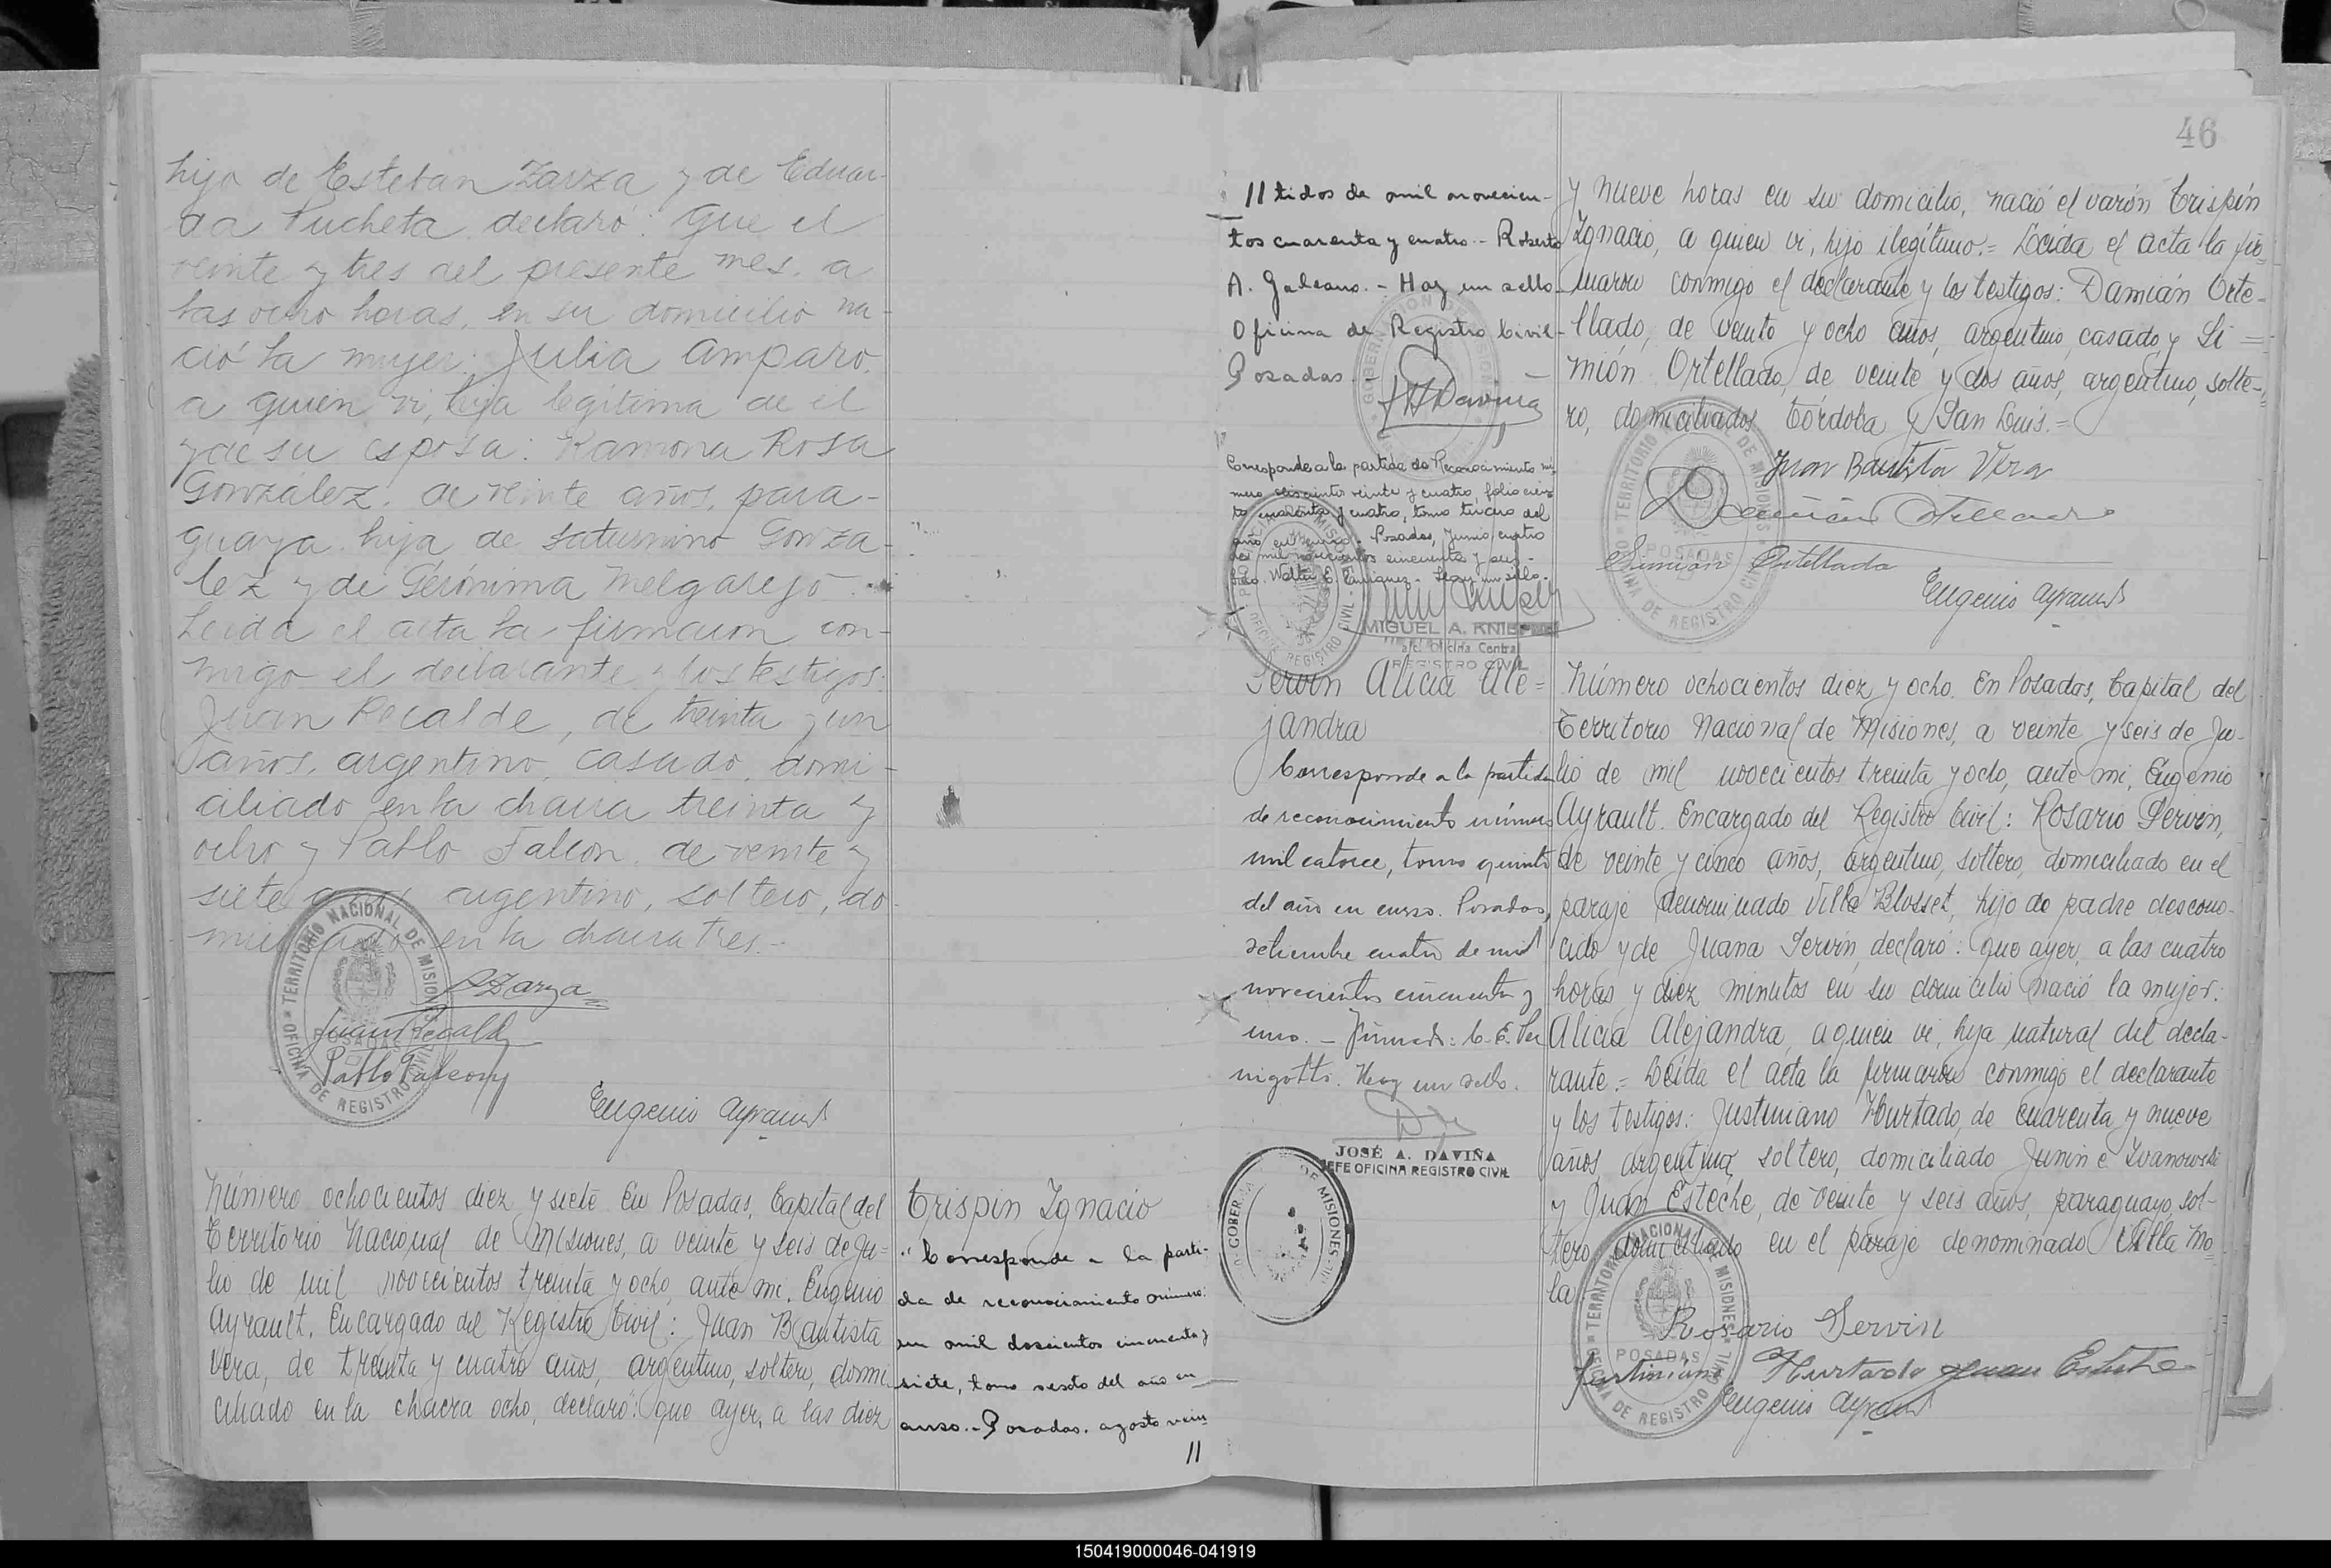 hijo de Esteban Zarza y de Eduar-
da Pucheta declaró: Que el
veinte y tres del presente mes, a
las ocho horas, en su domicilio na-
ció la mujer: Julia Amparo,
a quien vi, hija legítima de el
y de su esposa: Ramona Rosa
González, de veinte años, para-
guaya, hija de Saturnino Gonza-
lez y de Gerónima Melgarejo.
Leida el acta la firmaron con-
migo el declarante y los testigos:
Juan Recalde, de treinta y un
años, argentino, casado, domi-
ciliado en la chacra treinta y
ocho y Pablo Falcon, de veinte y
siete años argentino, soltero, do-
miciliado en la chacra tres.-
Zarza
Juan Recalde
Pablo Falcon
TERRITORIO NACIONAL DE MISIONES
OFICINA DE REGISTRO CIVIL
POSADAS
Eugenio Ayrault
Número ochocientos diez y siete En Posadas, Capital del
Territorio Nacional de Misiones, a veinte y seis de Ju=
lio de mil novecientos treinta y ocho, ante mi, Eugenio
Ayrault, Encargado del Registro Civil: Juan Bautista
Vera, de treinta y cuatro años, argentino, soltero, domi
ciliado en la chacra ocho, declaró: que ayer, a las diez
Crispin Ignacio
"Corresponde a la parti-
da de reconocimiento número:
un mil doscientos cincuenta y
siete, tomo sexto del año en
curso.- Posadas. agosto vein
//
46
// tidos de mil novecien-
tos cuarenta y cuatro.- Roberto
A. Galeano. - Hay un sello-
Oficina de Registro Civil-
Posadas.-
Corresponde a la partida de Reconocimiento nú
mero veinte y cuatro, folio cien
to cuarenta y cuatro, tomo tercero del
año en curso. Posadas, Junio cuatro
de mil novecientos cincuenta y seis.-
Hay un sello.-
MIGUEL A. KNIE
a/c. Oficina Central
REGISTRO CIVIL
Servin Alicia Ale=
jandra
Corresponde a la partida
de reconocimiento número
mil catorce, tomo quinto
del año en curso. Posadas,
setiembre cuatro de mil
novecientos cincuenta y
uno. - Firmado: C. E. Per
nigotti. Hay un sello.
JOSÉ A. DAVIÑA
JEFE OFICINA REGISTRO CIVIL
y nueve horas en su domicilio, nació el varón Crispín
Ignacio, a quien vi, hijo ilegítimo.= Leida el acta la fir=
maron conmigo el declarante y los testigos: Damián Orte-
llado, de veinte y ocho años, argentino, casado y Si=
mión Ortellado, de veinte y dos años, argentino, solte-
ro, domiciliados Córdoba y San Luis.=
Juan Bautista Vera
Damián Ortellado
Simión Ortellado
TERRITORIO NACIONAL DE MISIONES
OFICINA DE REGISTRO CIVIL
POSADAS
Eugenio Ayrault
Número ochocientos diez y ocho. En Posadas, Capital del
Territorio Nacional de Misiones, a veinte y seis de Ju-
lio de mil novecientos treinta y ocho, ante mi, Eugenio
Ayrault. Encargado del Registro Civil: Rosario Servin,
de veinte y cinco años, argentino, soltero, domiciliado en el
paraje denominado Villa Blosset, hijo de padre descono-
cido y de Juana Servin, declaró: que ayer, a las cuatro
horas y diez minutos en su domicilio nació la mujer:
Alicia Alejandra, a quien vi, hija natural del decla-
rante.= Leida el acta la firmaron conmigo el declarante
y los testigos: Justiniano Hurtado, de cuarenta y nueve
años, argentino, soltero, domiciliado Junin e Ivanowski
y Juan Esteche, de veinte y seis años, paraguayo, sol-
tero, domiciliado en el paraje denominado Villa Mo-
la.
Rosario Servin
Justiniano Hurtado Juan Esteche
Eugenio Ayrault
TERRITORIO NACIONAL DE MISIONES
OFICINA DE REGISTRO CIVIL
POSADAS
150419000046-041919